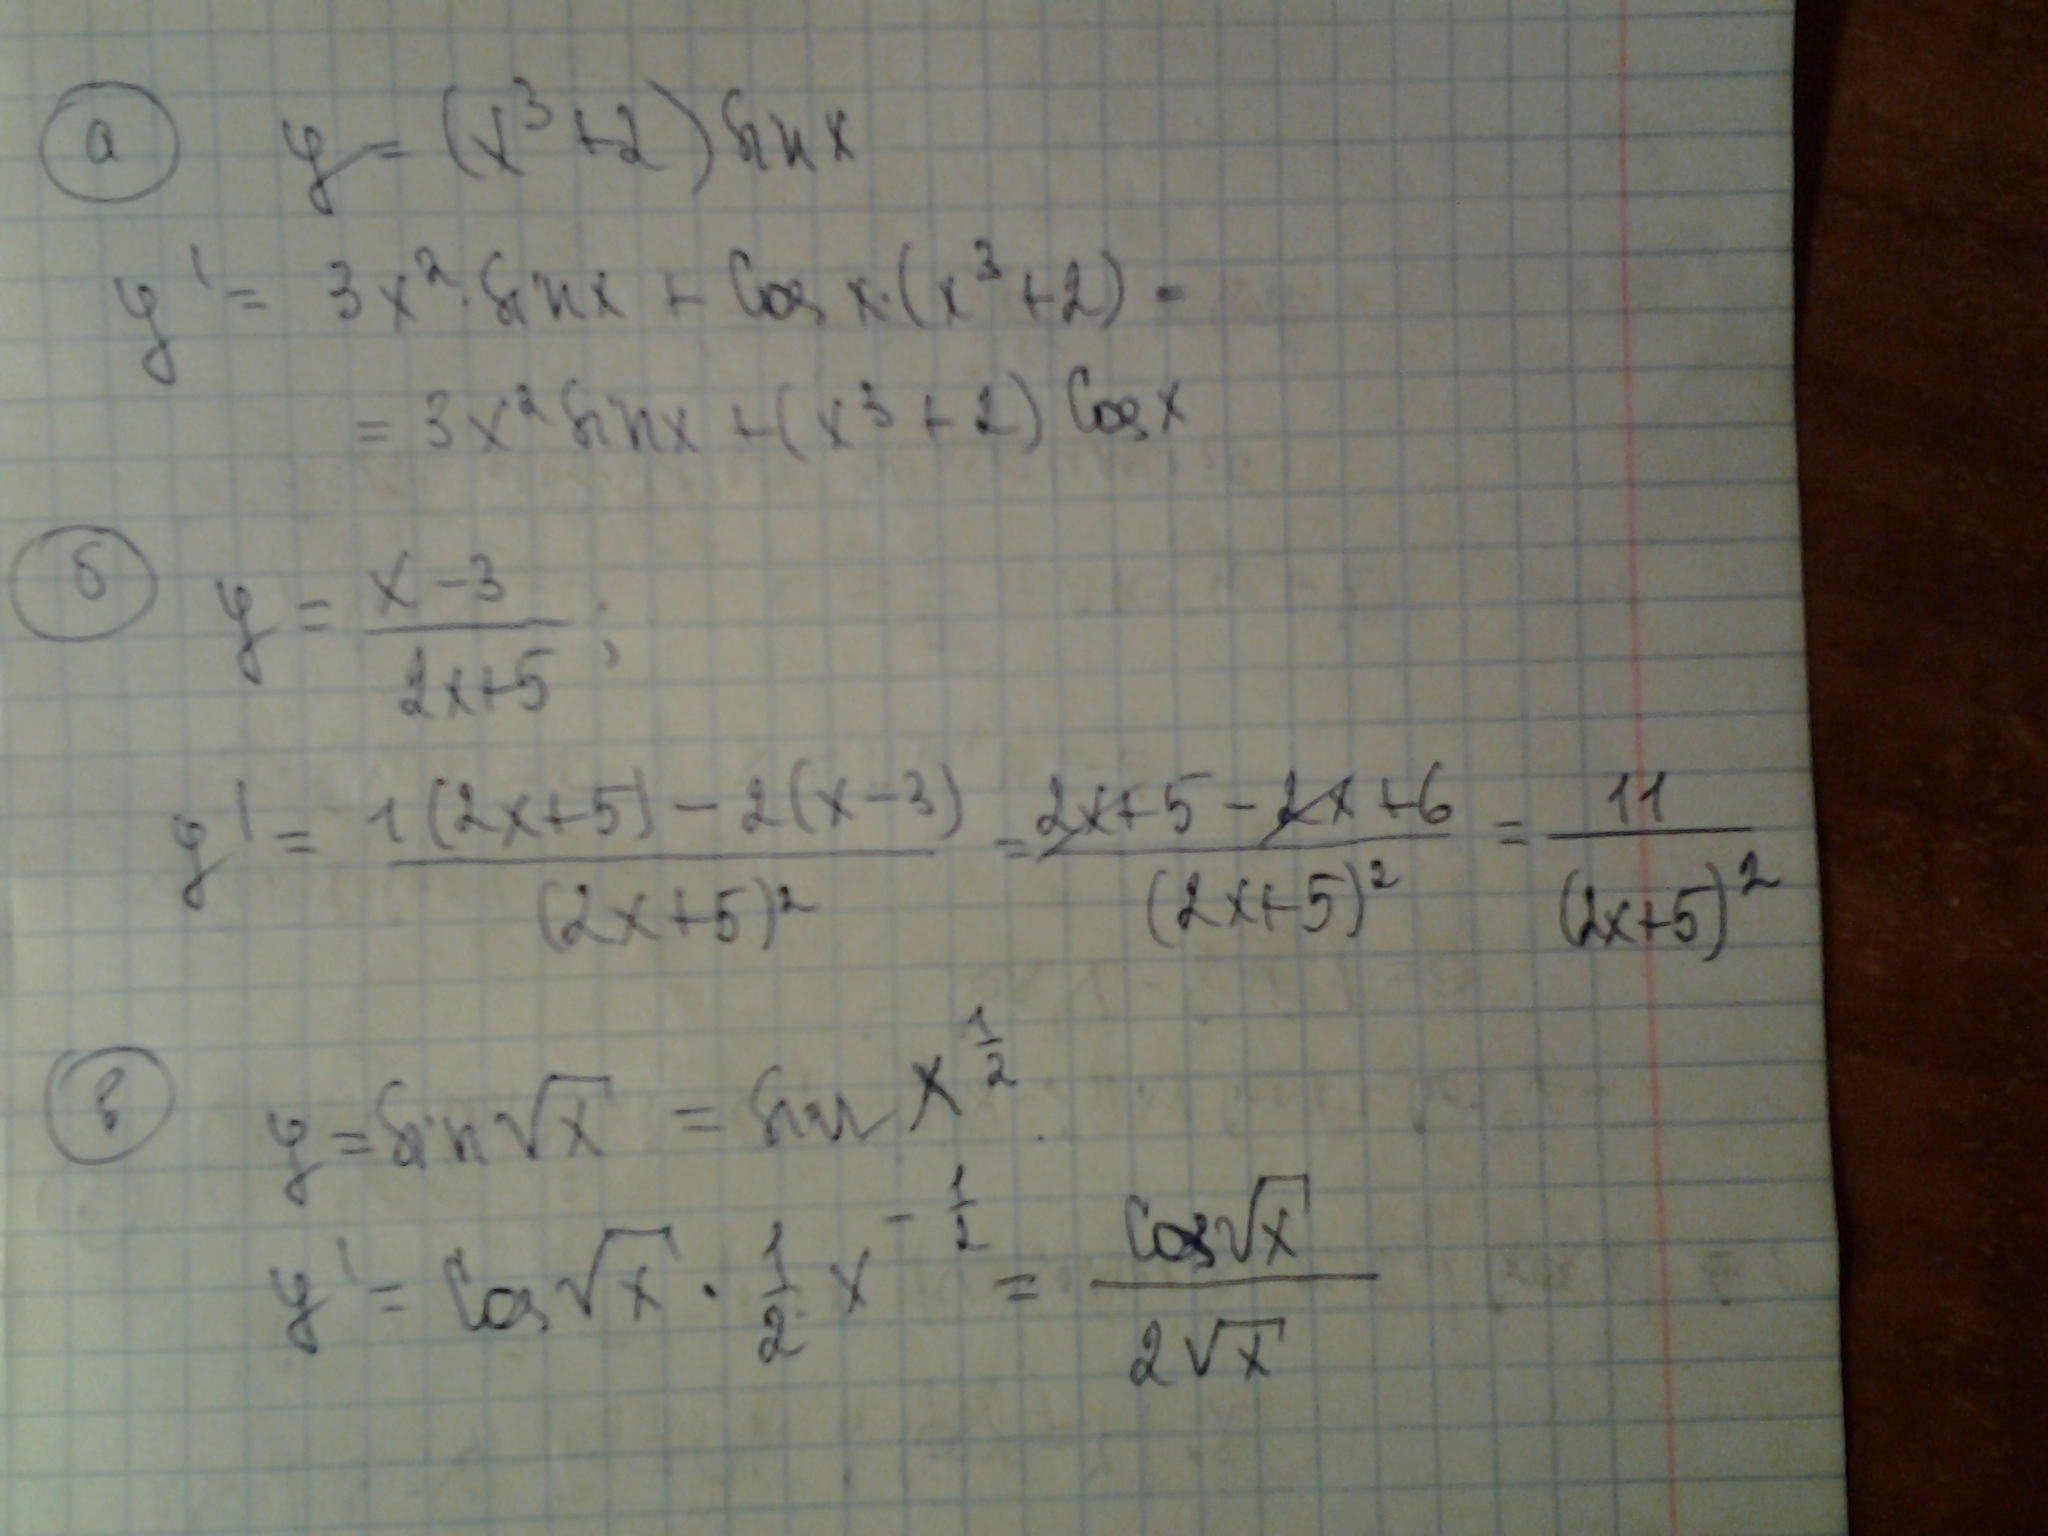 а y = (x³+2) sin x
y' = 3x²·sin x + cos x·(x³+2) =
= 3x² sin x + (x³+2) cos x
б y = (x-3)/(2x+5);
y' = (1(2x+5) - 2(x-3))/(2x+5)² = (2x+5-2x+6)/(2x+5)² = 11/(2x+5)²
в y = sin √x = sin x^(1/2)
y' = cos √x · 1/2 x^(-1/2) = cos √x/(2√x)